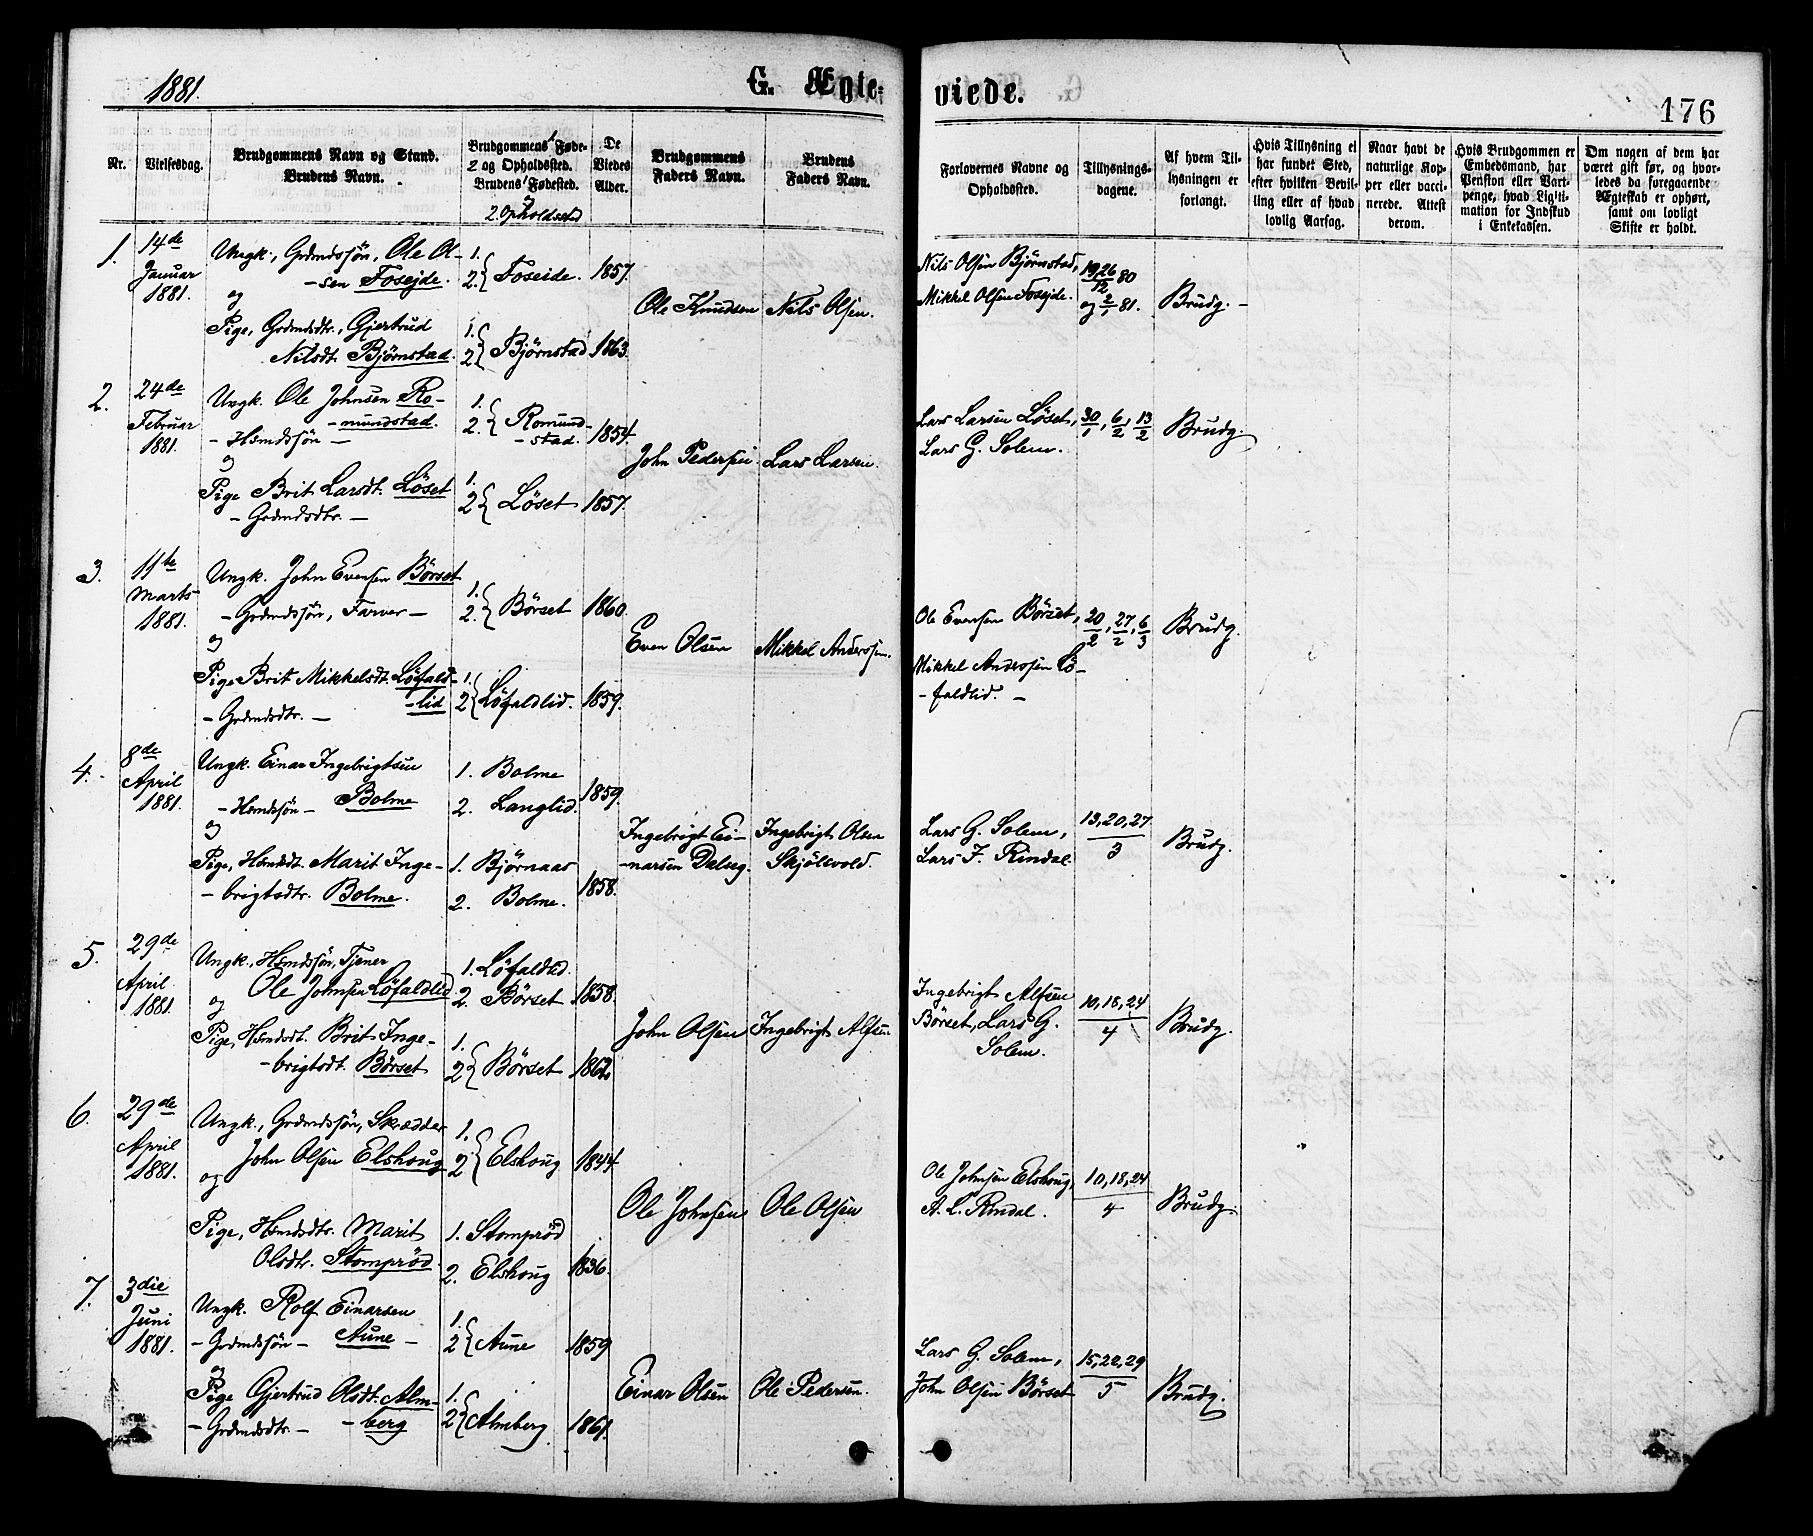 1881.
G. Ægteviede.
176
Nr.
Vielsesdag.
Brudgommens Navn og Stand.
Brudens Navn.
Brudgommens 1 Føde-
2 og Opholdssted.
Brudens 1 Fødested.
2. Opholdssted
De
Viedes
Alder.
Brudgommens
Faders Navn.
Brudens
Faders Navn.
Forlovernes Navne og
Opholdssted.
Tillysnings-
dagene.
Af hvem Til-
lysningen er
forlangt.
Hvis Tillysning ei
har fundet Sted,
efter hvilken Bevil-
ling eller af hvad
lovlig Aarsag.
Naar havt de
naturlige Kop-
per eller vacci-
nerede. Attest
derom.
Hvis Brudgommen er
Embedsmand, har
Pension eller Vart-
penge, hvad Legiti-
mation for Indskud
i Enkekassen.
Om nogen af dem har
været gift før, og hvor-
ledes da foregaaende
Ægteskab er ophørt,
samt om lovligt
Skifte er holdt.
1. 14de Januar 1881.
Ungk., Grdmdssøn, Ole Ol-
-sen Foseide.
1. 2. { Foseide. 1857.
og
Pige, Grdmdsdtr., Gjertrud
Nilsdt. Bjørnstad.
1. 2 { Bjørnstad 1863.
Ole Knudsen Nils Olsen.
Nils Olsen Bjørnstad,
Mikkel Olsen Foseide.
19,26/12 80
og 2/1 81.
Brudg. -
2. 24de Februar 1881.
Ungk. Ole Johnsen Ro-
-mundstad.
- Hsmdssøn -
1. 2. { Romund-
-stad. 1854.
og
Pige Brit Larsdt. Løset
- Grdmdsdtr. -
1. 2 { Løset 1857.
John Pedersen Lars Larsen.
Lars Larsen Løset,
Lars G. Solem.
30/1, 6/2, 13/2
Brudg.
3. 11te Marts 1881.
Ungk. John Evensen Børset
- Grdmdssøn, Farver -
1. 2. { Børset 1860.
og
Pige Brit Mikkelsdt. Løfald-
-lid
- Grdmdsdtr. -
1. 2 { Løfaldlid. 1859.
Even Olsen Mikkel Anderssen.
Ole Evensen Børset,
Mikkel Anderssen Lø-
-faldlid. -
20/2, 27/2, 6/3
Brudg.
4. 8de April 1881.
Ungk. Einar Ingebrigtsen
- Hsmdssøn - Bolme
1. Bolme
2. Langlid. 1859.
og
Pige, Hsmdsdt. Marit Inge-
- brigtsdtr. Bolme.
1. Bjørnaas
2. Bolme. 1858.
Ingebrigt Ei-
-narsen Dalseg.
Ingebrigt Olsen
Skjølvold.
Lars G. Solem,
Lars J. Rindal.
13,20,27/3
Brudg.
5. 29de April 1881.
Ungk., Hsmdssøn, Tjener
Ole Johnsen Løfaldlid
1. Løfaldlid.
2. Børset 1858.
og
Pige, Hsmdsdt. Brit Inge-
-brigtsdt. Børset
1. 2 { Børset 1862.
John Olsen Ingebrigt Alfsen.
Ingebrigt Alfsen
Børset, Lars G.
Solem.
10,18,24/4
Brudg.
6. 29de April 1881.
Ungk., Grdmdssøn, Skrædder
John Olsen Elshoug
1. 2 { Elshoug 1844.
og
Pige, Hsmdsdtr. Marit
Olsdtr. Stomprød.
1. Stomprød
2. Elshoug 1836.
Ole Johnsen Ole Olsen
Ole Johnsen Elshoug,
A. L. Rindal.
10,18,24/4
Brudg.
7. 3die Juni 1881.
Ungk. Rolf Einarsen
- Grdmdssøn - Aune -
1. 2 { Aune 1859
og
Pige Gjertrud Olsdt. Alm-
- Grdmdsdtr. - -berg
1. 2 { Almberg 1861.
Einar Olsen Ole Pedersen.
Lars G. Solem,
John Olsen Børset
15,22,29/5
Brudg.